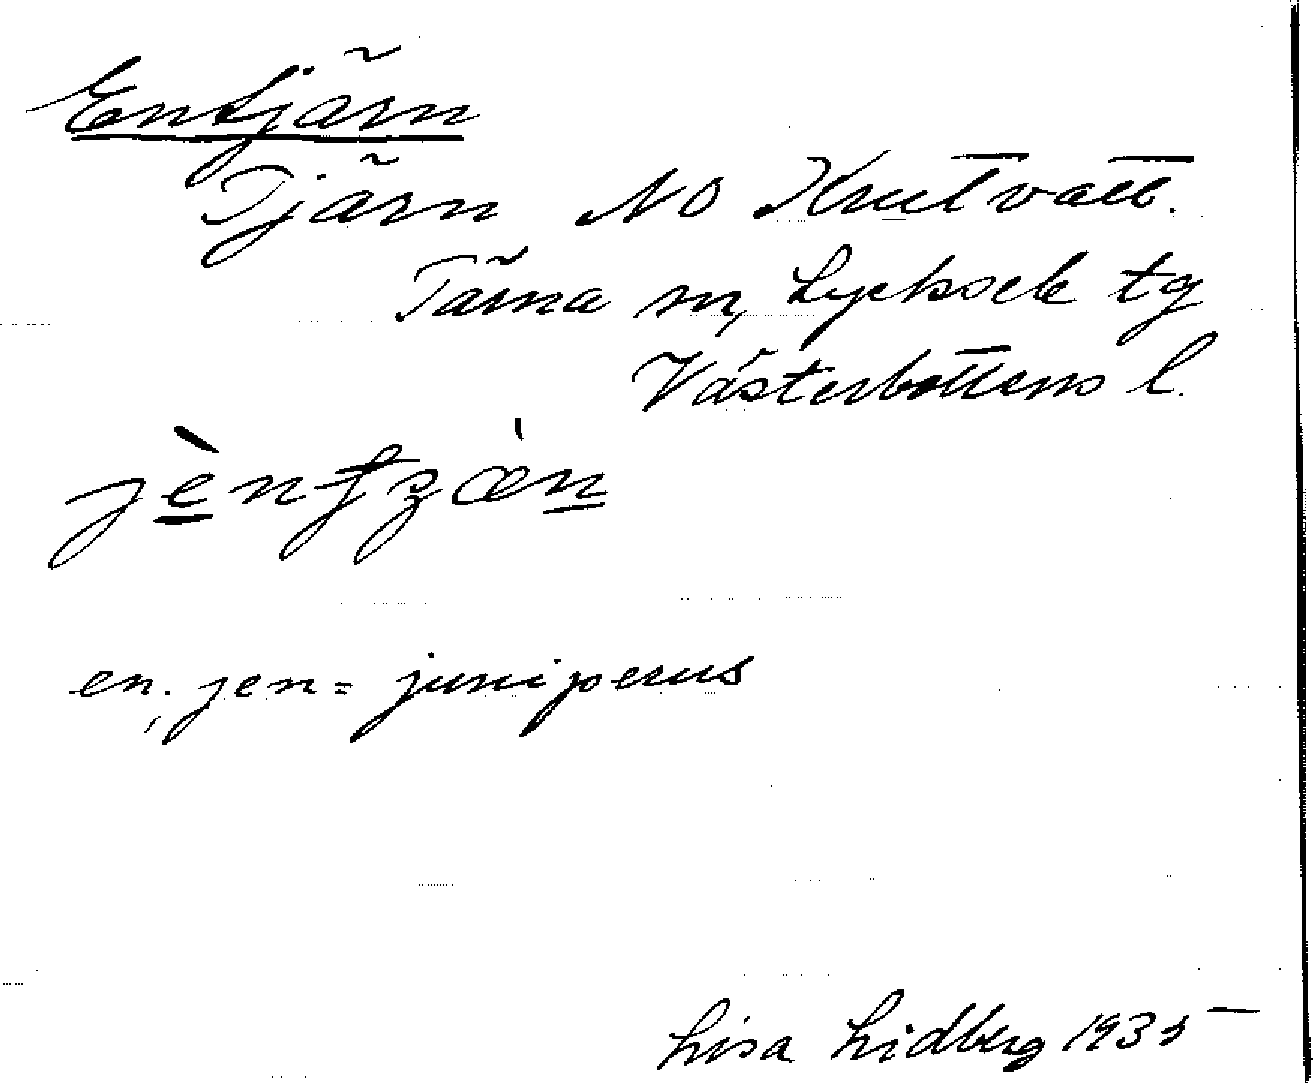 Entjärn
Tjärn NO Knutvatt.
Tärna sn, Lycksele tg
Västerbottens l.
en, jen = juniperus
Lisa Lidberg 1935